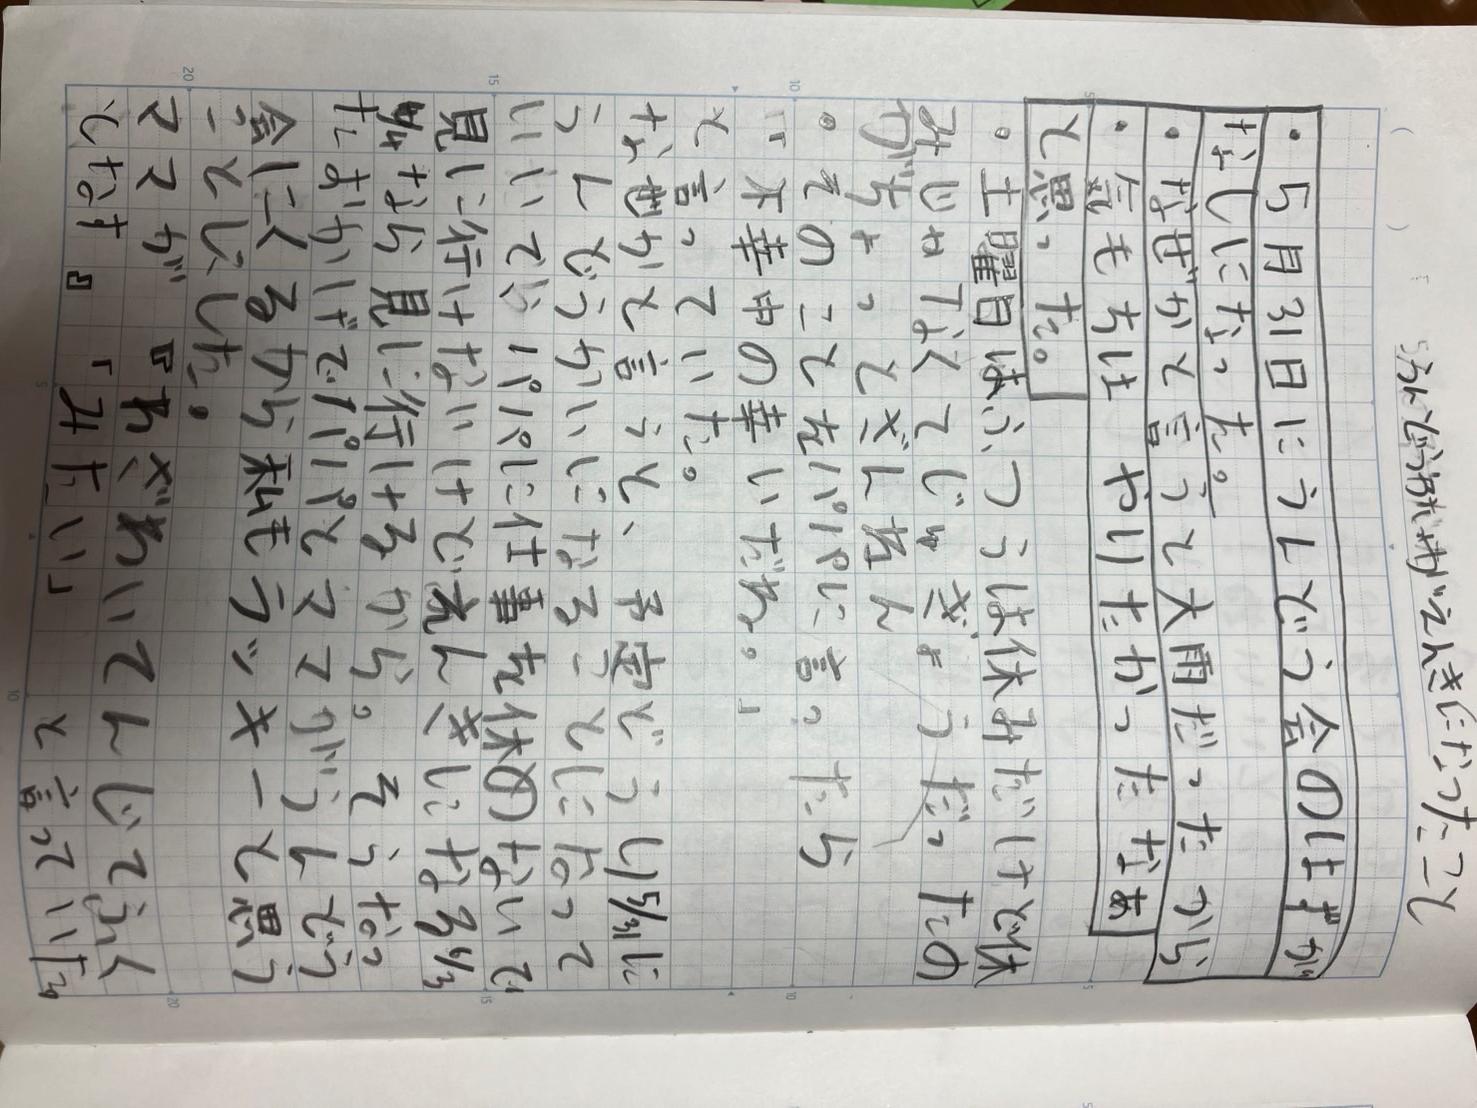 うんどうかいがえんきになったこと
・5月31日にうんどう会のはずが
なしになった。
・なぜかと言うと大雨だったから
・気もちは やりたかったなあ
と思った。
・土曜日はふつうは休みだけど休
みじゃなくてじゅぎょうだったの
がちょっとざんねん
・そのことをパパに言ったら
「不幸中の幸いだね。」
と言っていた。
なぜかと言うと、予定どうり5/31に
うんどうかいになることになって
パパに仕事を休めないで
見に行けないけどえんきになる6/3
6/4なら見に行けるから。そうなっ
たおかげでパパとママがうんどう
会にくるから私もラッキーと思う
ことにした。
ママが『わざわいてんじてふく
となす』「みたい」と言ってい